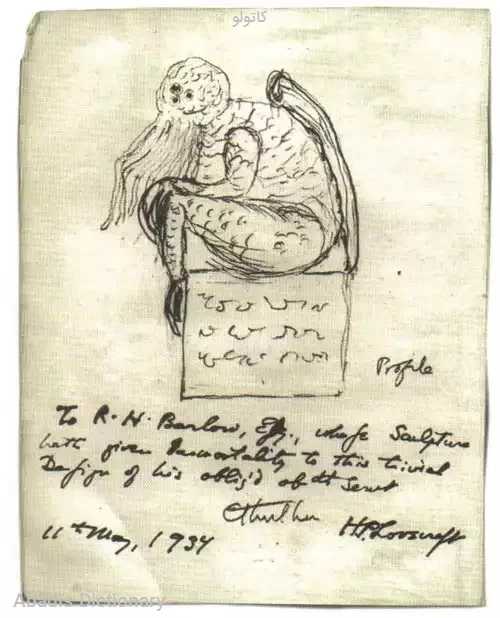 کاتولو
Profile
To R. H. Barlow, Esq., whose Sculpture
hath given Immortality to this trivial
Design of his oblig'd obt Servt
Cthulhu H.P. Lovecraft
11th May, 1934
Abadis Dictionary